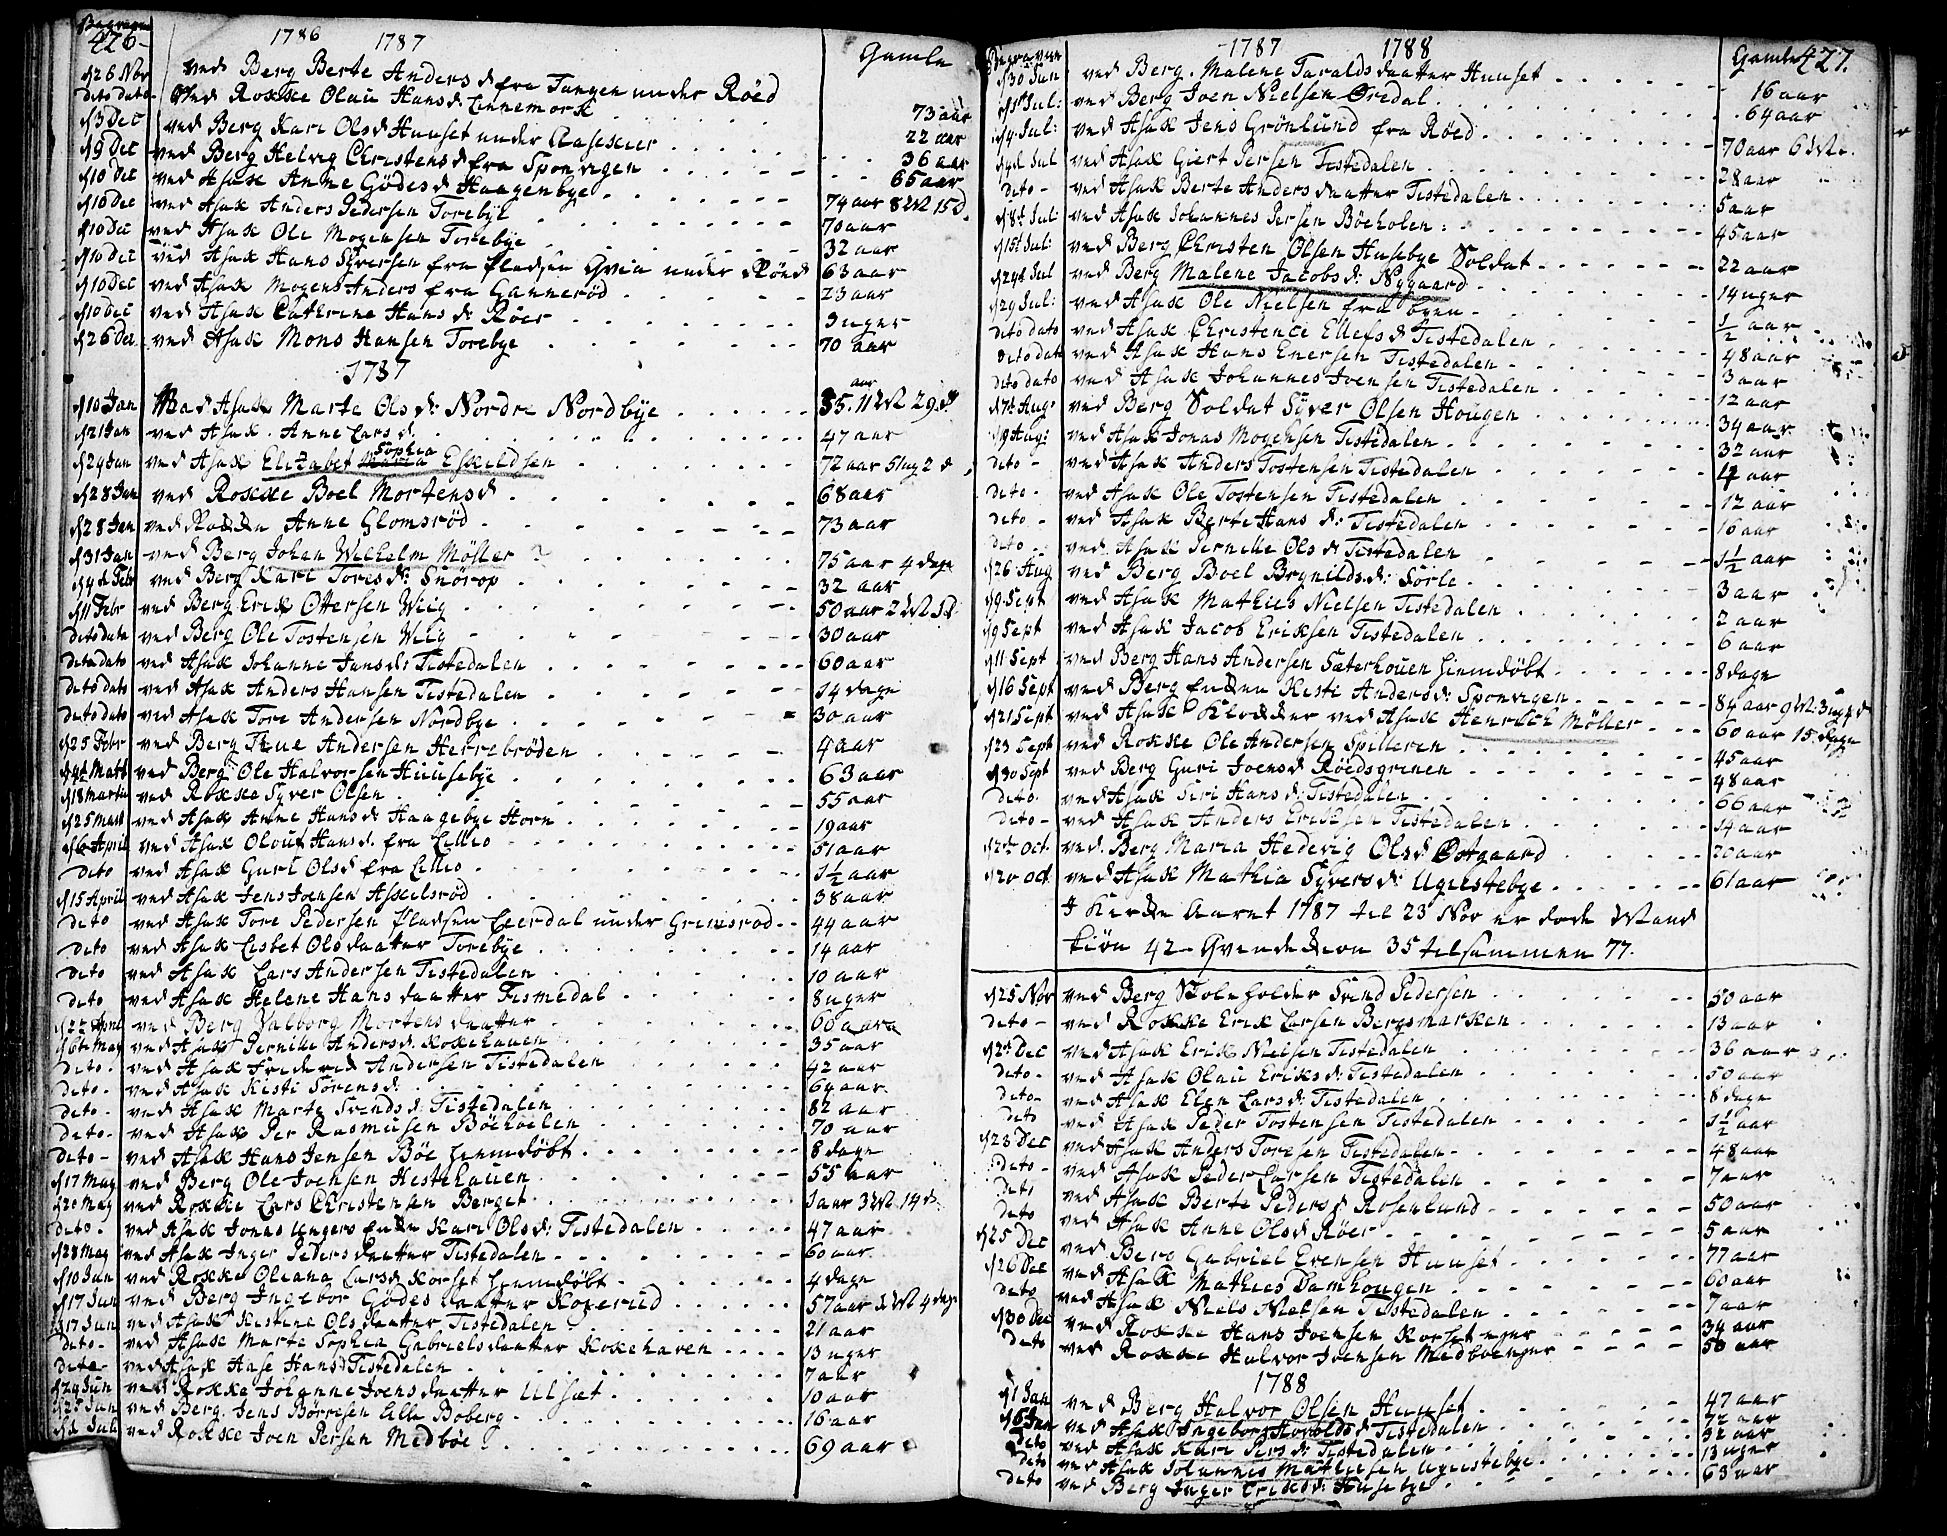 Begravne
426-
1786 1787
Gamle
d 26 Nov ved Berg Berte Andersd fra Tangen under Röed
dito dato ved Rokke Olau Hansd. Linnemork 73 aar
d 3 Dec ved Berg Kari Olsd Huuset under Aaseskier 22 aar
d 9 Dec ved Berg Helvig Christensd fra Sponvigen 36 aar
d 10 Dec ved Asak Anne Gödesd Haagenbye 65 aar
d 10 Dec ved Asak Anders Pedersen Torebye 74 aar 8 M 15 d.
d 10 Dec ved Asak Ole Mogensen Torebye 70 aar
d 10 Dec ved Asak Hans Syversen fra Pladsen Gvia under Rönd 32 aar
d 10 Dec ved Asak Mogens Anders fra Ganneröd 63 aar
d 10 Dec ved Asak Cathrine Hansd: Röer 23 aar
3 uger
d 26 Dec ved Asak Mons Hansen Torebye 70 aar
1787
d 10 Jan Ved Asak Marte Olsd: Nordre Nordbye 35 aar 11 M 29 d
d 21 Jan ved Asak Anne Larsd. 47 aar
d 24 Jan ved Asak Elizabet Maria Sophia Eskildsen 72 aar 5 ug 2 d
d 28 Jan ved Rokke Boel Mortensd 68 aar
d 28 Jan ved Rokke Anne Glomsröd 73 aar
d 31 Jan ved Berg Johan Wilhelm Möller 75 aar 4 dage
d 4de Febr ved Berg Kari Toresd: Snörop 32 aar
d 11 Febr ved Berg Erik Ottersen Weig 50 aar 2 M 5 d
dito dato ved Berg Ole Tostensen Weig 30 aar
dito dato ved Asak Johanne Jansd: Tistedalen 60 aar
dito dato ved Asak Anders Hansen Tistedalen 14 dage
dito dato ved Asak Tore Andersen Nordbye 30 aar
d 25 Febr ved Berg Thue Andersen Herrebröden 4 aar
d 4de Mart ved Berg Ole Halvorsen Huusebye 63 aar
d 18 Martii ved Rokke Syver Olsen 55 aar
d 25 Mart ved Asak Anne Hansd Haagebye Horn 19 aar
d 6 April ved Asak Olouf Hansd. fra Lillio 51 aar
dito ved Asak Guri Olsd fra Lillio 1 1/2 aar
d 15 April ved Asak Jens Joensen Askelsröd 38 aar
dito ved Asak Tore Pedersen Pladsen Leerdal under Grimsrod 44 aar
dito ved Asak Lisbet Olsdaatter Torebye 14 aar
dito ved Asak Lars Andersen Tistedalen 10 aar
dito ved Asak Helene Hansdaatter Fismedal 8 uger
d 22 April ved Berg Valborg Mortensdaatter 60 aar
d 6te May ved Asak Pernille Andersd. Kokehauen 35 aar
dito ved Asak Frideric Andersen Tistedalen 42 aar
dito ved Asak Kisti Sörensd. 64 aar
dito ved Asak Marte Svendsd: Tistedalen 82 aar
dito ved Asak Per Rasmusen Böehöelen 70 aar
dito ved Asak Hans Jensen Böe hiemdöbt 8 dage
d 17 May ved Berg Ole Joensen Hestehauen 55 aar
d 20 May ved Rokke Lars Christensen Berget 1 aar 3 M 14 d
dito ved Asak Jonas Ungers Enke Kari Olsd: Tistedalen 47 aar
d 28 May ved Asak Inger Pedersdaatter Tistedalen 60 aar
d 10 Jun ved Rokke Oleana Larsd Korset hiemdöbt 4 dage
d 17 Jun ved Berg Ingebor Gödesdaatter Kokerud 57 aar 1 M 4 dage
d 17 Jun ved Asak Kistine Olsdaatter Tistedalen 21 aar
dito ved Asak Marte Sophia Gabrielsdaatter Kokehaven 13 uger
dito ved Asak Aase Hansd Tistedalen 7 aar
d 24 Jun ved Rokke Johanne Joensdaatter Ulsæt 10 aar
d 25 Jun ved Berg Jens Börresen Lille Boberg 16 aar
d 1 Jul ved Rokke Joen Persen Medböe 69 aar
Begravne
1787 1788
Gamle 427.
d 30 Jun ved Berg Malene Taraldsdaatter Huuset 16 aar
d 1st Jul: ved Berg Joen Nielsen Öredal 64 aar
d 4 Jul: ved Asak Jens Grönlund fra Röed 70 aar 6 M.
d 4de Jul ved Asak Giert Persen Tistedalen 28 aar
dito ved Asak Berte Andersdaatter Tistedalen 5 aar
d 8t Jul: ved Asak Johannes Persen Böeholen 45 aar
d 15t Jul: ved Berg Christen Olsen Husebye Soldat 22 aar
d 24d Jul ved Berg Malene Jacobsd: Nygaard 14 uger
d 29 Jul: ved Asak Ole Nielsen fra Öven 1/2 aar
dito dato ved Asak Christence Ellefsd Tistedalen 48 aar
dito dato ved Asak Hans Enersen Tistedalen 3 aar
dito dato ved Asak Johannes Joensen Tistedalen 12 aar
d 7de Aug: ved Berg Soldat Syver Olsen Hougen 34 aar
d 19 Aug: ved Asak Jonas Mogensen Tistedalen 32 aar
dito ved Asak Anders Tostensen Tistedalen 4 aar
dito ved Asak Ole Tostensen Tistedalen 12 aar
dito ved Asak Berte Hansd: Tistedalen 16 aar
dito ved Asak Pernille Olsd Tistedalen 1 1/2 aar
d 26 Aug ved Berg Boel Brynildsd: Sörle 3 aar
d 9 Sept ved Asak Mathies Nielsen Tistedalen 2 aar
d 9 Sept ved Asak Jacob Eriksen Tistedalen 6 aar
d 11 Sept ved Berg Hans Andersen Sæterhouen hiemdöbt 8 dage
d 16 Sept ved Berg Enken Kisti Andersd: Sponvigen 84 aar 9 M. 3 ug
d 21 Sept ved Asak Klokker ved Asak Henrich Möller 60 aar 15 dage
d 23 Sept ved Rokke Ole Andersen Spilleren 45 aar
d 30 Sept ved Berg Guri Joensd Röedsgrinen 48 aar
dito ved Asak Siri Hansd: Tistedalen 66 aar
dito ved Asak Anders Eriksen Tistedalen 14 aar
d 2de Oct. ved Berg Maria Hedevig Olsd Östgaard 20 aar
d 20 Oct ved Asak Mathia Syversd: Ugiestebye 61 aar
I Kirke Aaret 1787 til 23 Nov er döde Mand
Kiön 42 - Qvindekion 35 tilsammen 77.
d 25 Nov ved Berg Skoleholder Svend Pedersen 50 aar
dito ved Rokke Erik Larsen Bergsmarken 13 aar
d 2de Dec ved Asak Erik Nielsen Tistedalen 36 aar
dito ved Asak Olau Eriksd: Tistedalen 50 aar
dito ved Asak Elen Larsd: Tistedalen 8 dage
dito ved Asak Peder Tostensen Tistedalen 1 1/2 aar
d 23 Dec ved Asak Anders Toresen Tistedalen 48 aar
dito ved Asak Peder Larsen Tistedalen 7 aar
dito ved Asak Berte Pedersd Rosenlund 50 aar
dito ved Asak Anne Olsd Röer 5 aar
d 25 Dec ved Berg Gabriel Evensen Huuset 77 aar
d 26 Dec ved Asak Mathies Damhougen 60 aar
dito ved Asak Niels Nielsen Tistedalen 7 aar
d 30 Dec ved Rokke Hans Joensen Korset eger 34 aar
dito ved Rokke Halvor Joensen Medböeiger 50 aar
1788
d 1 Jan ved Berg Halvor Olsen Huuset 47 aar
d 6 Jan ved Asak Ingebor Havoldsd Tistedalen 72 aar
dito ved Asak Kari Persd: Tistedalen 32 aar
dito ved Asak Johannes Mathiesen Ugiestebye 13 uger
dito ved Berg Inger Eriksd: Husebye 63 aar